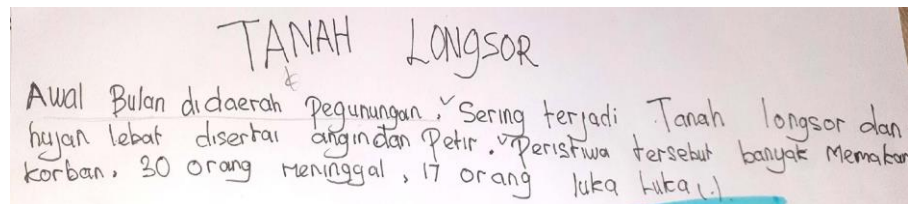 TANAH LONGSOR
Awal Bulan didaerah Pegunungan, Sering terjadi Tanah longsor dan
hujan lebat disertai angindan Petir. Peristiwa tersebut banyak Memakan
korban, 30 orang meninggal, 17 orang luka Luka (.)